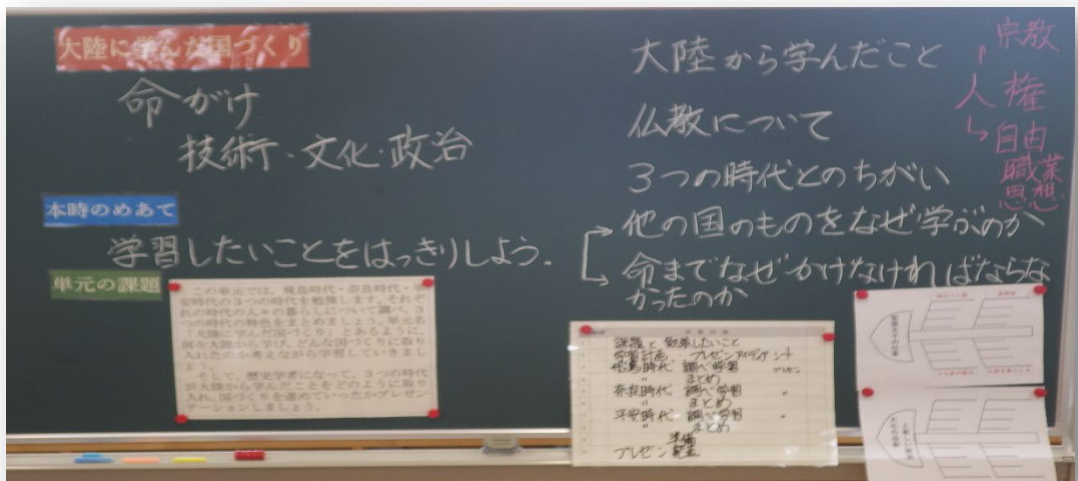 大陸に学んだ国づくり
命がけ
技術・文化・政治
本時のめあて
学習したいことをはっきりしよう.
単元の課題
この単元では、飛鳥時代・奈良時代・平
安時代の3つの時代を勉強します。それぞ
れの時代の人々の暮らしについて調べ、3
つの時代の特色をまとめましょう。単元名
「大陸に学んだ国づくり」とあるように、
何を大陸から学び、どんな国づくりに取り
入れたのか考えながら学習していきまし
ょう。
そして、歴史学者になって、3つの時代
が大陸から学んだことをどのように取り
入れ、国づくりを進めていったかプレゼン
テーションしましょう。
大陸から学んだこと
仏教について
3つの時代とのちがい
他の国のものをなぜ学ぶのか
命までなぜかけなければならな
かったのか
宗教
人権
自由
職業
思想
課題と
学習計画
飛鳥時代 調べ学習
〃 まとめ
奈良時代 調べ学習 〃
〃 まとめ
平安時代 調べ学習 〃
〃 まとめ
準備
プレゼン発表